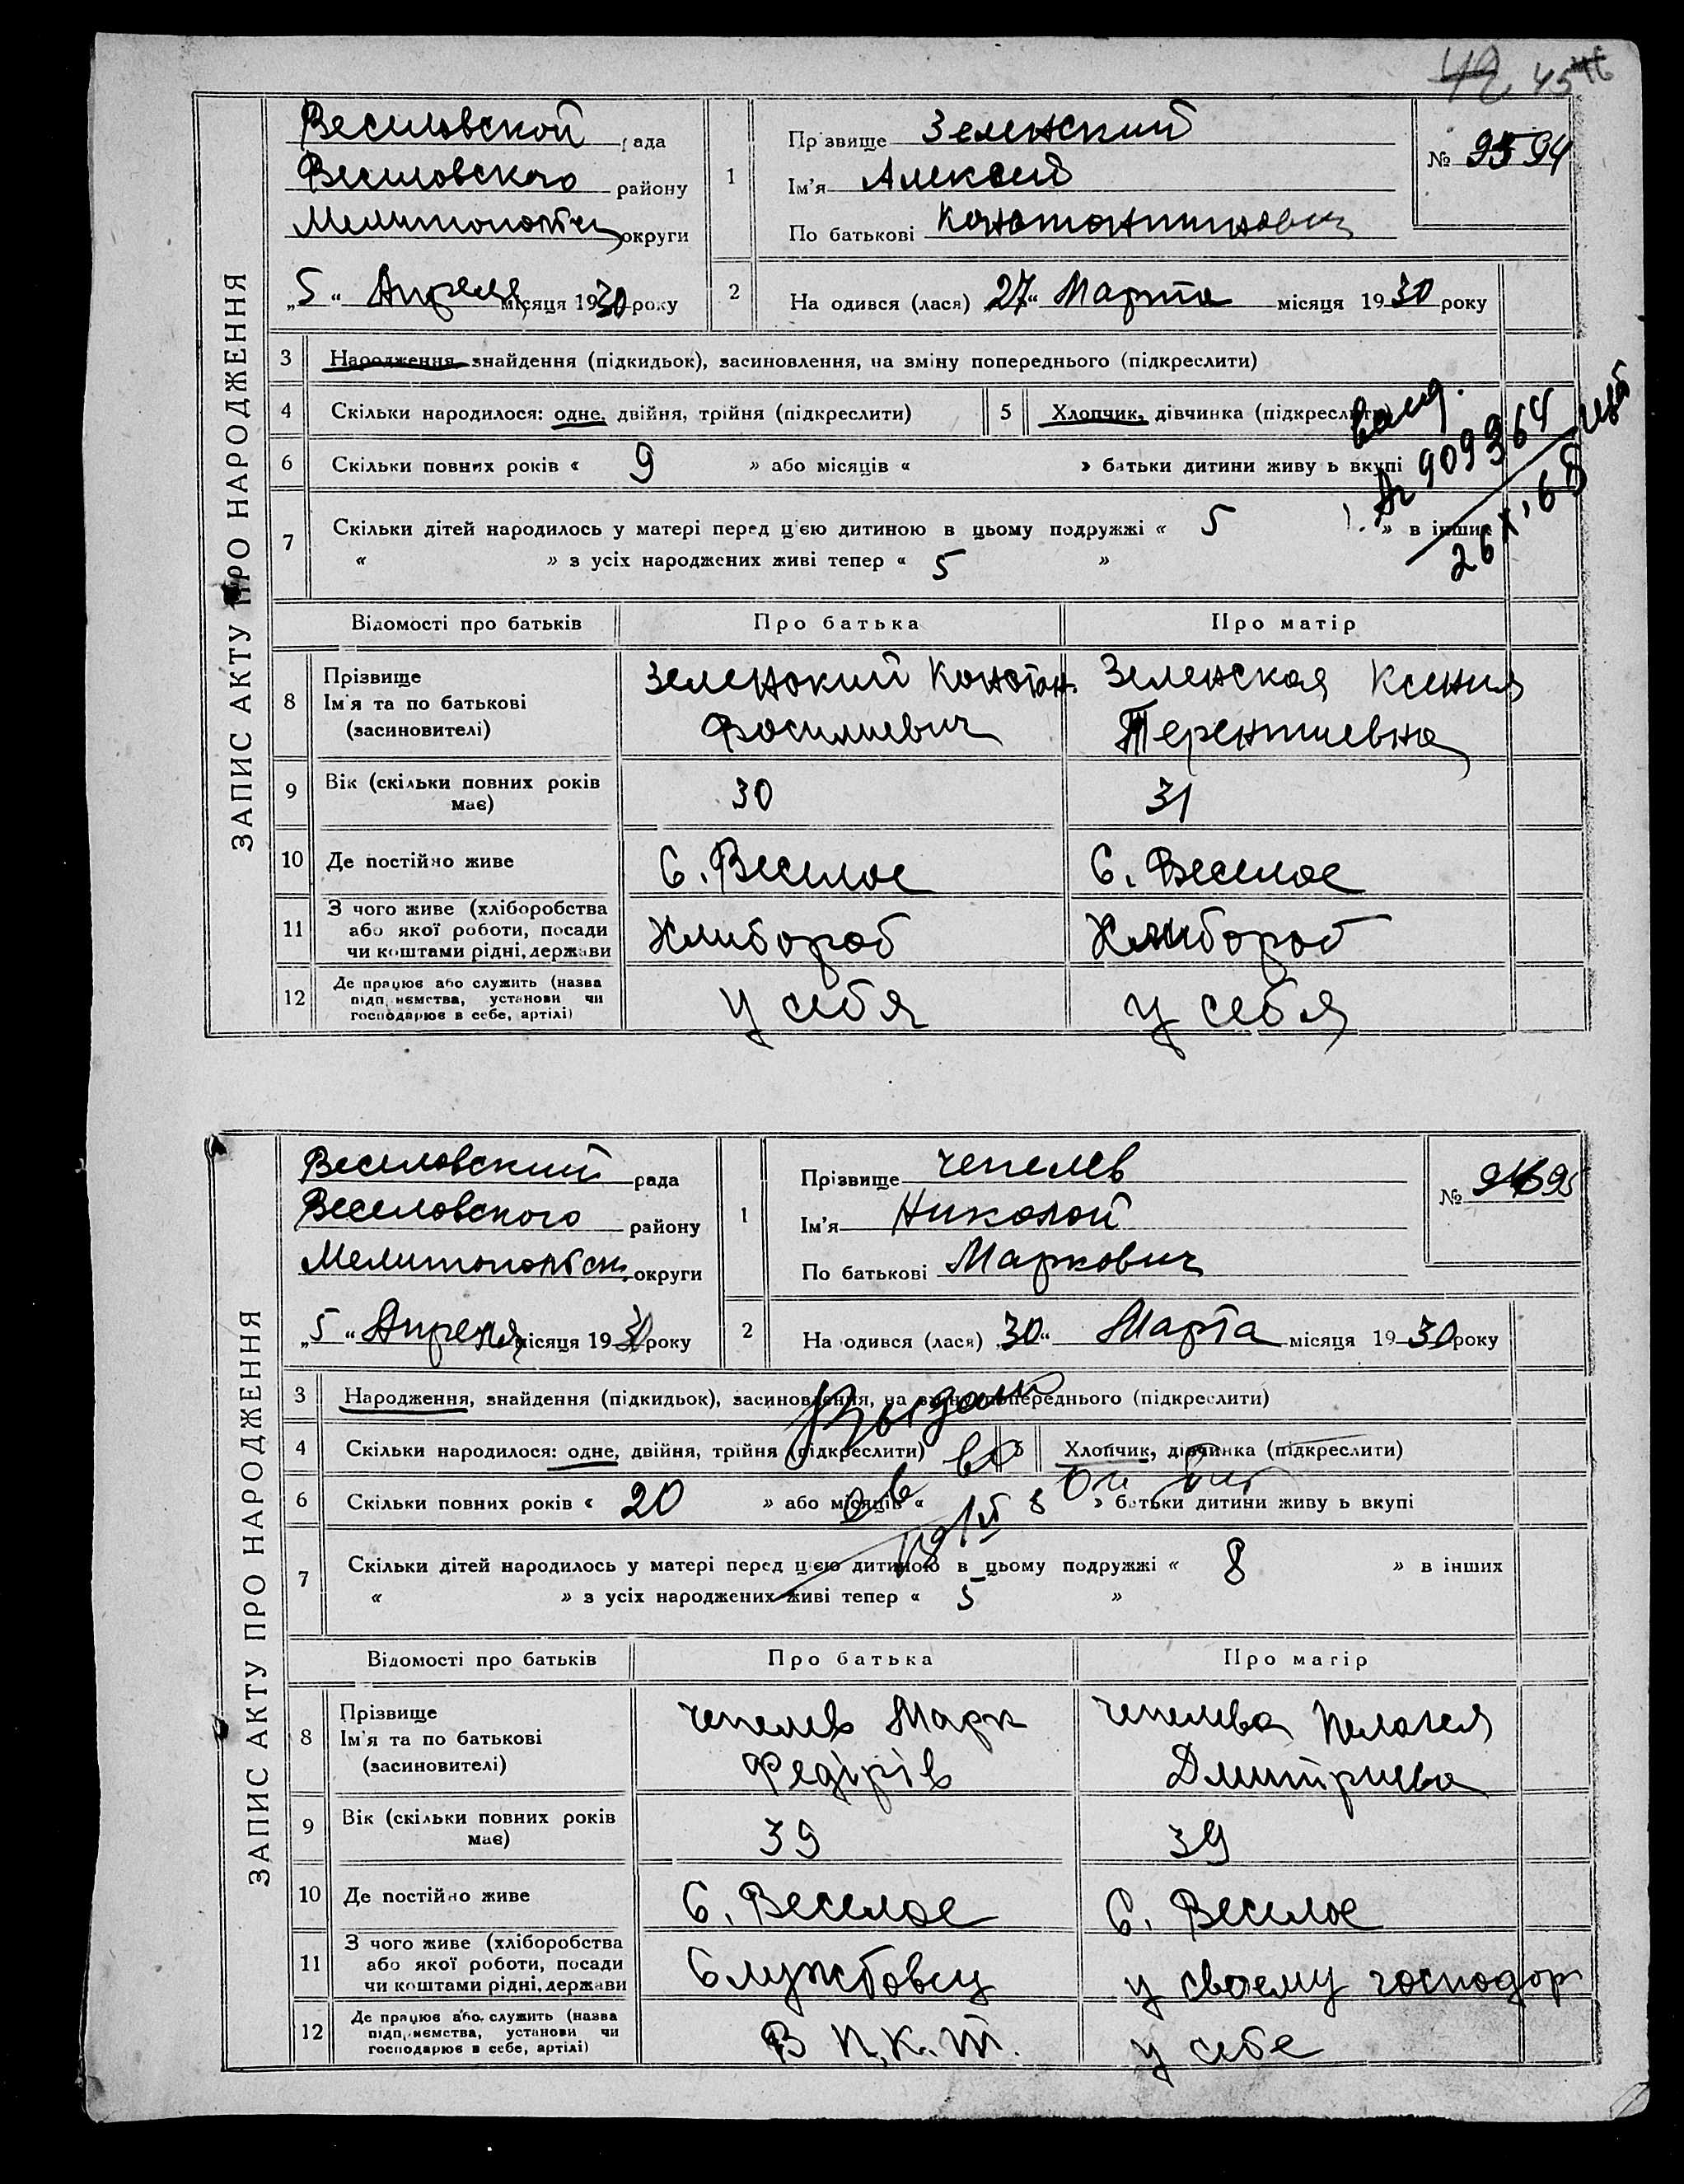 45
ЗАПИС АКТУ ПРО НАРОДЖЕННЯ
Веселовской рада
Веселовского району
Мелитопольск округи
„5“ Апреля місяця 1930 року
1 Прізвище Зеленский
Ім'я Алексей
По батькові Константинович
№ 94
2 Народився (лася) „27“ Марта місяця 1930 року
3 Народження, знайдення (підкидьок), засиновлення, на зміну попереднього (підкреслити)
4 Скільки народилося: одне, двійня, трійня (підкреслити) 5 Хлопчик, дівчинка (підкреслити)
6 Скільки повних років « 9 » або місяців « » батьки дитини живуть вкупі
7 Скільки дітей народилось у матері перед цією дитиною в цьому подружжі « 5 » в інших
« » з усіх народжених живі тепер « 5 »
909364
Відомості про батьків Про батька Про матір
8 Прізвище Ім'я та по батькові (засновителі)
Зеленский Констан. Зеленская Ксения
Василиевич Терентиевна
9 Вік (скільки повних років має) 30 31
10 Де постійно живе С. Веселое С. Веселое
11 З чого живе (хліборобства або якої роботи, посади чи коштами рідні, держави Хлибороб Хлибороб
12 Де працює або служить (назва підприємства, установи чи господарює в себе, артілі) у себя у себя
ЗАПИС АКТУ ПРО НАРОДЖЕННЯ
Веселовский рада
Веселовского району
Мелитопольск. округи
„5“ Апреля місяця 1930 року
1 Прізвище Чепелев
Ім'я Николой
По батькові Маркович
№ 95
2 Народився (лася) „30“ Марта місяця 1930 року
3 Народження, знайдення (підкидьок), засиновлення, на зміну попереднього (підкреслити)
4 Скільки народилося: одне, двійня, трійня (підкреслити) 5 Хлопчик, дівчинка (підкреслити)
6 Скільки повних років « 20 » або місяців « » батьки дитини живуть вкупі
7 Скільки дітей народилось у матері перед цією дитиною в цьому подружжі « 8 » в інших
« » з усіх народжених живі тепер « 5 »
Відомості про батьків Про батька Про матір
8 Прізвище Ім'я та по батькові (засиновителі)
Чепелев Марк Чепелева Пелагея
Федірів Дмитриева
9 Вік (скільки повних років має) 39 39
10 Де постійно живе С. Веселое С. Веселое
11 З чого живе (хліборобства або якої роботи, посади чи коштами рідні, держави Службовец у своему господар
12 Де працює або служить (назва підприємства, установи чи господарює в себе, артілі) В П.К.Т. у себе